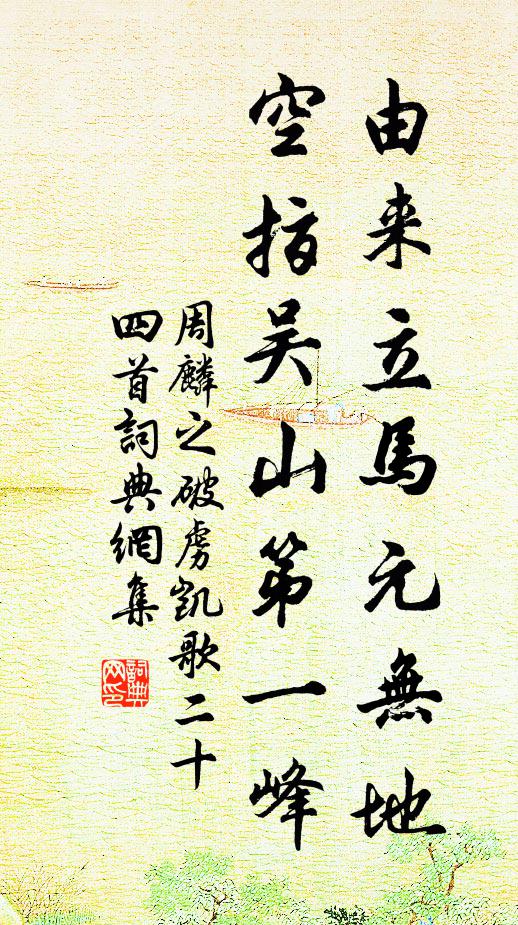 由来立馬元無地
空指吴山第一峰
周麟之破虜凱歌二十
四首詞典網集
詞典
网印